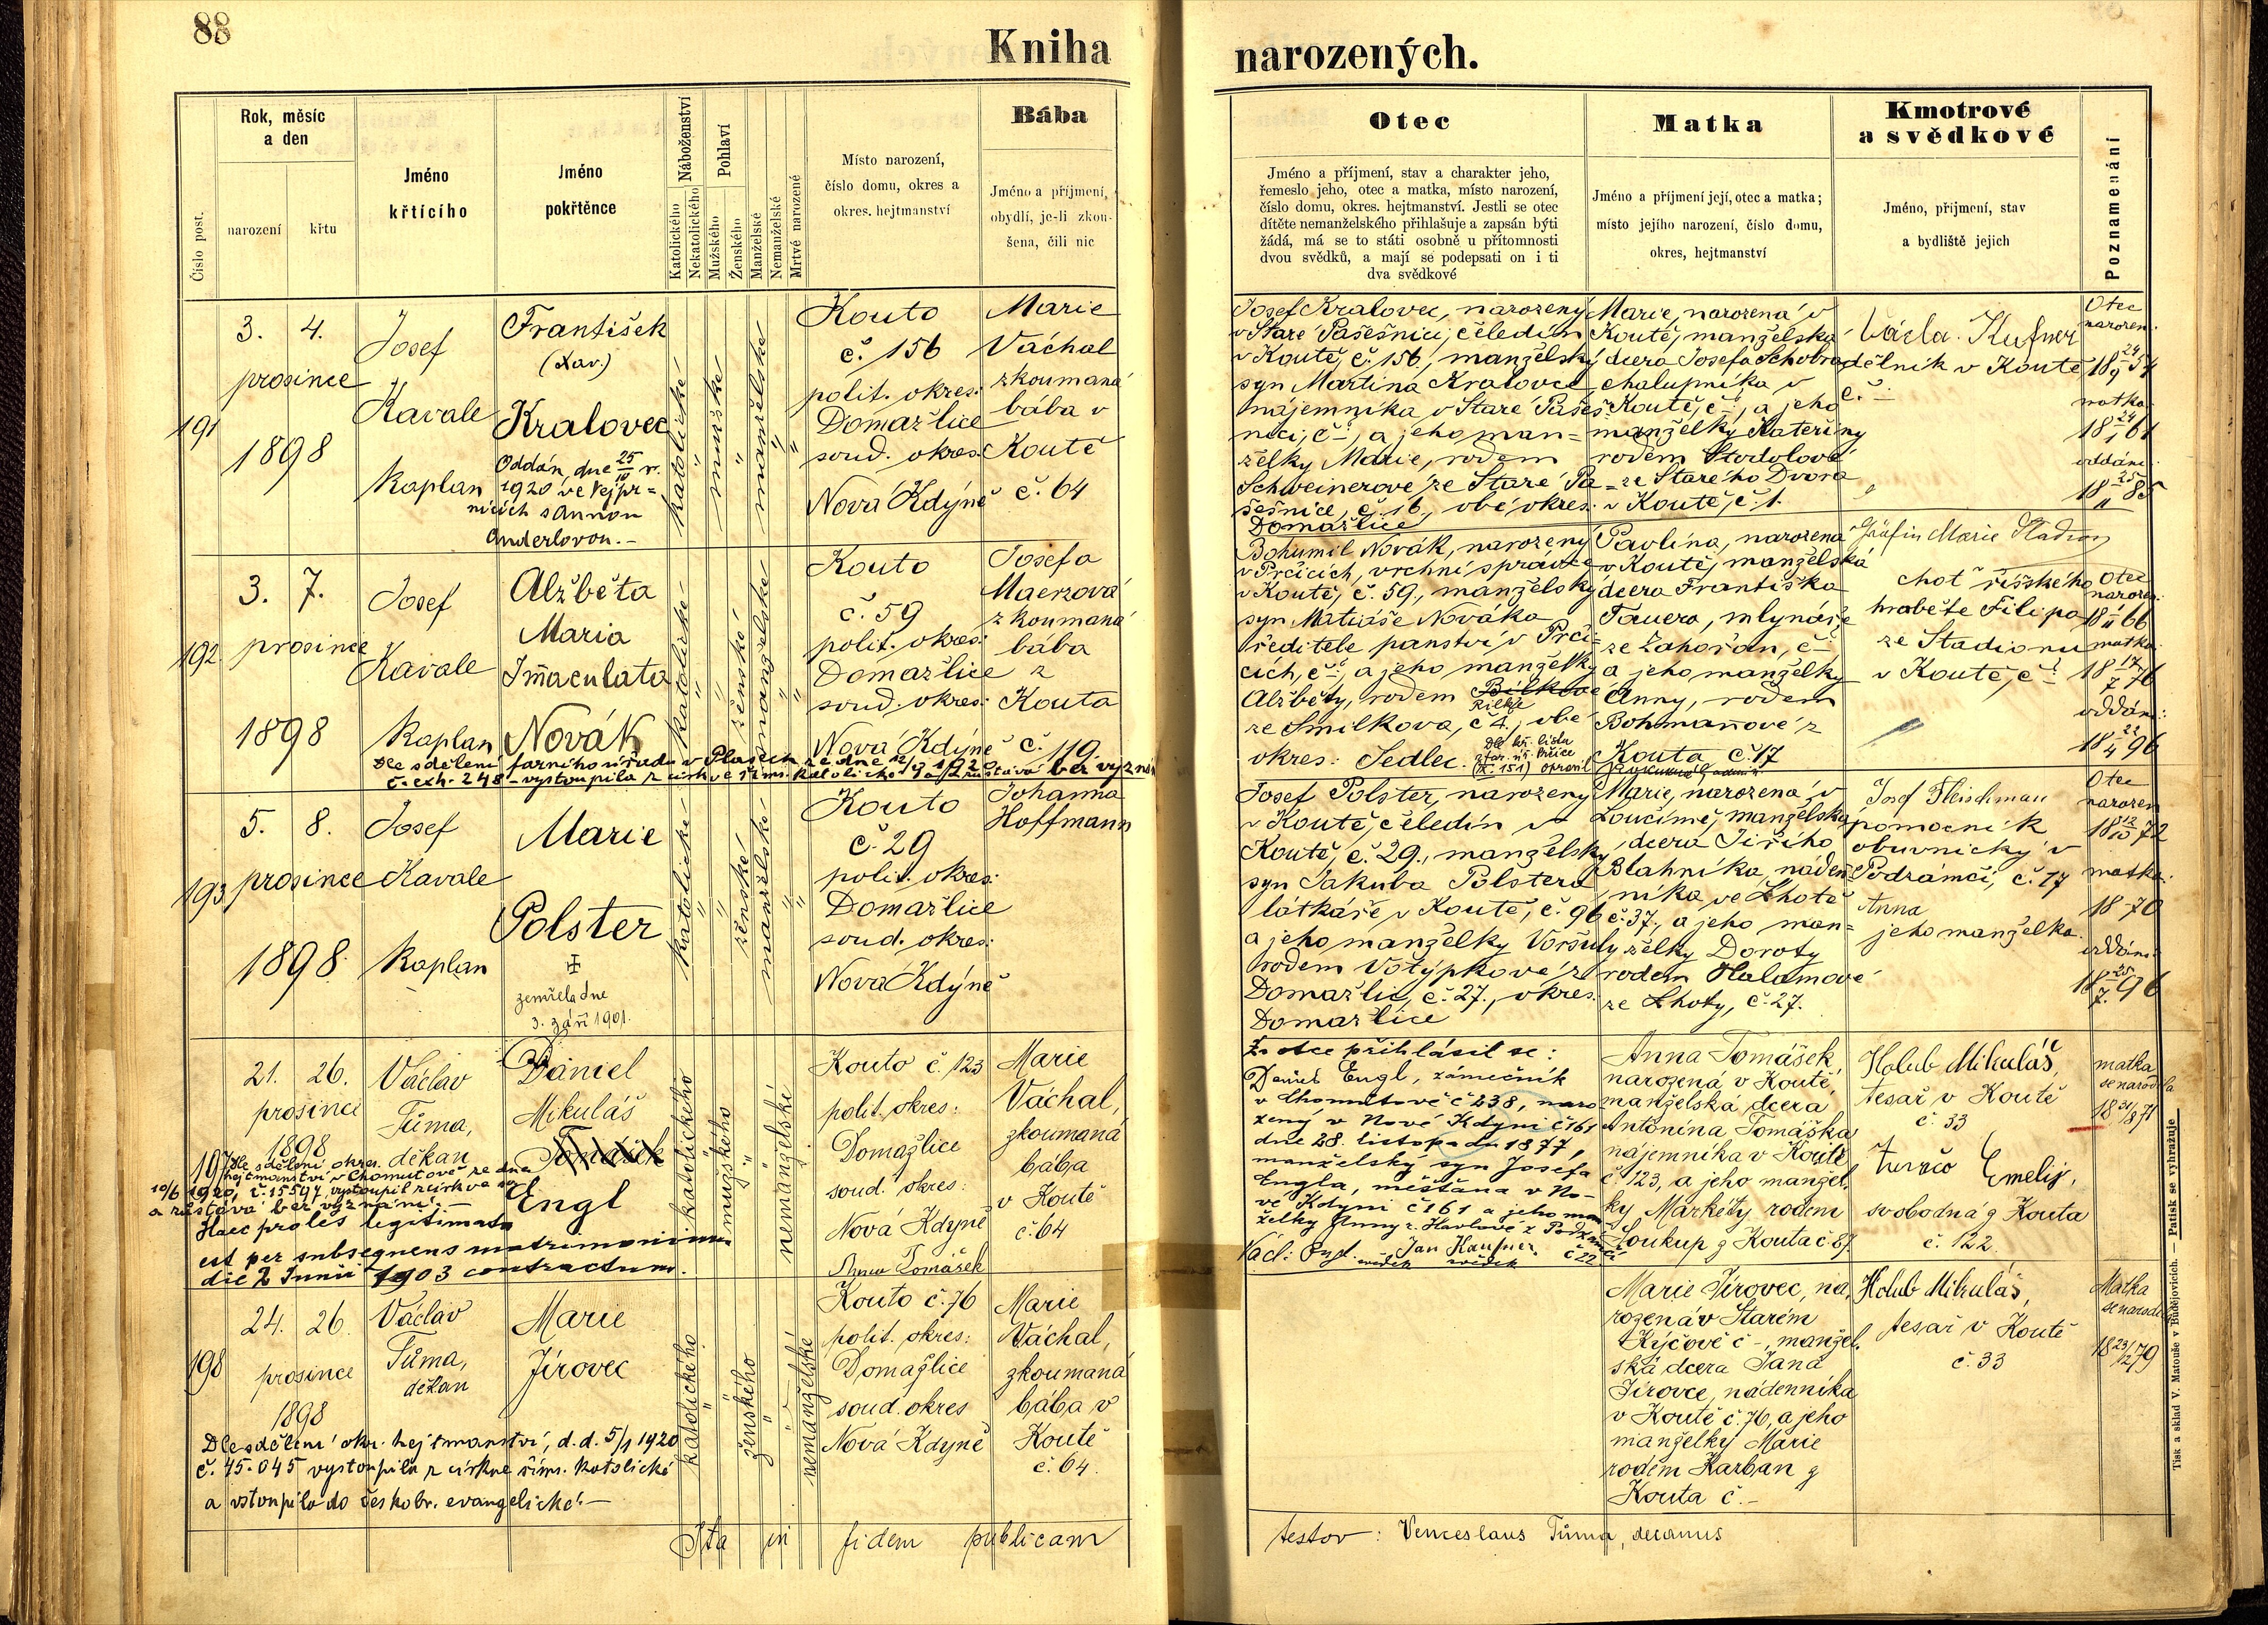 88
Kniha
narozených.
Číslo post.
Rok, měsíc
a den
narození
křtu
Jméno
křtícího
Jméno
pokřtěnce
Náboženství
Katolického
Nekatolického
Pohlaví
Mužského
Ženského
Manželské
Nemanželské
Mrtvé narozené
Místo narození,
číslo domu, okres a
okres. hejtmanství
Bába
Jméno a příjmení,
obydlí, je-li zkou-
šena, čili nic
Otec
Jméno a příjmení, stav a charakter jeho,
řemeslo jeho, otec a matka, místo narození,
číslo domu, okres. hejtmanství. Jestli se otec
dítěte nemanželského přihlašuje a zapsán býti
žádá, má se to státi osobně u přítomnosti
dvou svědků, a mají se podepsati on i ti
dva svědkové
Matka
Jméno a příjmení její, otec a matka;
místo jejího narození, číslo domu,
okres, hejtmanství
Kmotrové
a svědkové
Jméno, přijmení, stav
a bydliště jejich
Poznamenání
191
3. 4.
prosince
1898
Josef
Kavale
Kaplan
František
(Xav.)
Kralovec
Oddán dne 25/10 r.
1920 ve Vejpr=
nicích s Annou
Anderlovou.-
katolické
mužské
manželské
Kouto
č. 156
polit. okres:
Domažlice
soud. okres:
Nová Kdýně
Marie
Váchal
zkoumaná
bába v
Koutě
č. 64
Josef Kralovec, narozený
v Staré Pasešnici, čeledín
v Koutě, č. 156., manželský
syn Martina Kralovce
nájemníka v Staré Paseš
nici, č-, a jeho man=
želky Marie, rodem
Schweinerové ze Staré Pa=
sešnice, č. 16., obé okres:
Domažlice
Marie, narozená v
Koutě, manželská
dcera Josefa Schobra
chalupníka v
Koutě, č-, a jeho
manželky Kateřiny
rodem Stodolové
ze Starého Dvora
v Koutě, č. 1.
Václa. Kufner
dělník v Koutě
č. -
Otec
narozen:
18 24/9 54
matka:
18 24/1 61
oddáni:
18 25/11 85
192
3. 7.
prosince
1898
Josef
Kavale
Kaplan
Alžběta
Maria
Immaculata
Novák
Dle sdělení farního úřadu v Plasích ze dne 12/9 1920
č. exh. 248 - vystoupila z církve řims. katolické a zůstává bez vyznání
katolické
ženské
manželské
Kouto
č. 59
polit. okres:
Domažlice
soud. okres:
Nová Kdýně
Josefa
Maerzová
zkoumaná
bába
z
Kouta
č. 119.
Bohumil Novák, narozený
v Prčicích, vrchní správce
v Koutě, č. 59., manželský
syn Matiáše Nováka
ředitele panství v Prči=
cích, č-, a jeho manželky
Alžběty, rodem Bílkové
Rilke
ze Smilkova, č 4., obé
okres: Sedlec.
Dle kř. listu
z far. úř. Prčice
(č. 151) opravil
Pavlína, narozená
v Koutě, manželská
dcera Františka
Tauera, mlynáře
ze Zahořan, č-
a jeho manželky
Anny, rodem
Bohmannové z
Kouta č. 17
Gräfin Marie Stadion
choť říšského
hraběte Filipa
ze Stadionu
v Koutě, č. 1
Otec
narozen:
18 1/11 66
matka:
18 17/7 76
oddáni:
18 22/4 96
193
5. 8.
prosince
1898
Josef
Kavale
Kaplan
Marie
Polster
zemřela dne
3. září 1901.
katolické
ženské
manželské
Kouto
č. 29
polit. okres:
Domažlice
soud. okres:
Nová Kdýně
Johanna
Hoffmann
Josef Polster, narozený
v Koutě, čeledín v
Koutě, č. 29., manželský
syn Jakuba Polstera
látkáře v Koutě, č. 96
a jeho manželky Voršuly
rodem Votýpkové z
Domažlic, č. 27., okres.
Domažlice
Marie, narozená v
Loučimě, manželská
dcera Jiřího
Blahníka, náden=
níka ve Lhotě
č. 37., a jeho man=
želky Doroty
rodem Halamové
ze Lhoty, č. 27.
Josef Fleischman
pomocník
obuvnický v
Podzámčí, č. 17
Anna
jeho manželka.
Otec
narozen
18 12/10 72
matka:
18 70
oddáni:
18 25/7 96
197
21. 26.
prosince
1898
Václav
Tůma,
děkan
Daniel
Mikuláš
Tomášek
Engl
Dle sdělení okres.
hejtmanství v Chomutově ze dne
10/6 1920, č. 15597 vystoupil z církve
a zůstává bez vyznání.-
Haec proles legitimata
est per subsequens matrimonium
die 2 Junii 1903 contractum.
katolického
mužského
nemanželské
Kouto č. 123
polit. okres:
Domažlice
soud. okres:
Nová Kdyně
Anna Tomášek
Marie
Váchal,
zkoumaná
bába
v Koutě
č. 64
Za otce přihlásil se:
Daniel Engl, zámečník
v Chomutově č 238, naro
zený v Nové Kdyni č 161
dne 28. listopadu 1877,
manželský syn Josefa
Engla, měšťana v No-
vé Kdyni č 161 a jeho man
želky Anny r. Havlové z Podzámčí
č 22
Jan Kaufner
svědek svědek
Anna Tomášek,
narozená v Koutě,
manželská dcera
Antonína Tomáška
nájemníka v Koutě
č 123, a jeho manžel.
ky Markéty rodem
Soukup z Kouta č. 87
Holub Mikuláš,
tesař v Koutě
č. 33
Emelij,
svobodná z Kouta
č. 122.
matka
se narodila
18 31/8 71
198
24. 26.
prosince
1898
Václav
Tůma,
děkan
Marie
Jírovec
Dle sdělení okr. hejtmanství, d. d. 5/1 1920
č. 45.045 vystoupila z církve řims. katolické
a vstoupila do českobr. evangelické.-
katolického
ženského
nemanželské
Kouto č. 76
polit. okres:
Domažlice
soud. okres
Nová Kdyně
Marie
Váchal,
zkoumaná
bába v
Koutě
č. 64.
Marie Jírovec, na,
rozená v Starém
Kýčově č -, manžel.
ská dcera Jana
Jírovce, nádenníka
v Koutě č. 76, a jeho
manželky Marie
rodem Karban z
Kouta č. -
Holub Mikuláš,
tesař v Koutě
č. 33
Matka
se narodila
18 23/12 79
Ita in fidem publicam
testor: Venceslaus Tůma, decanus
Tisk a sklad V. Matouše v Budějovicích. — Patisk se vyhražuje